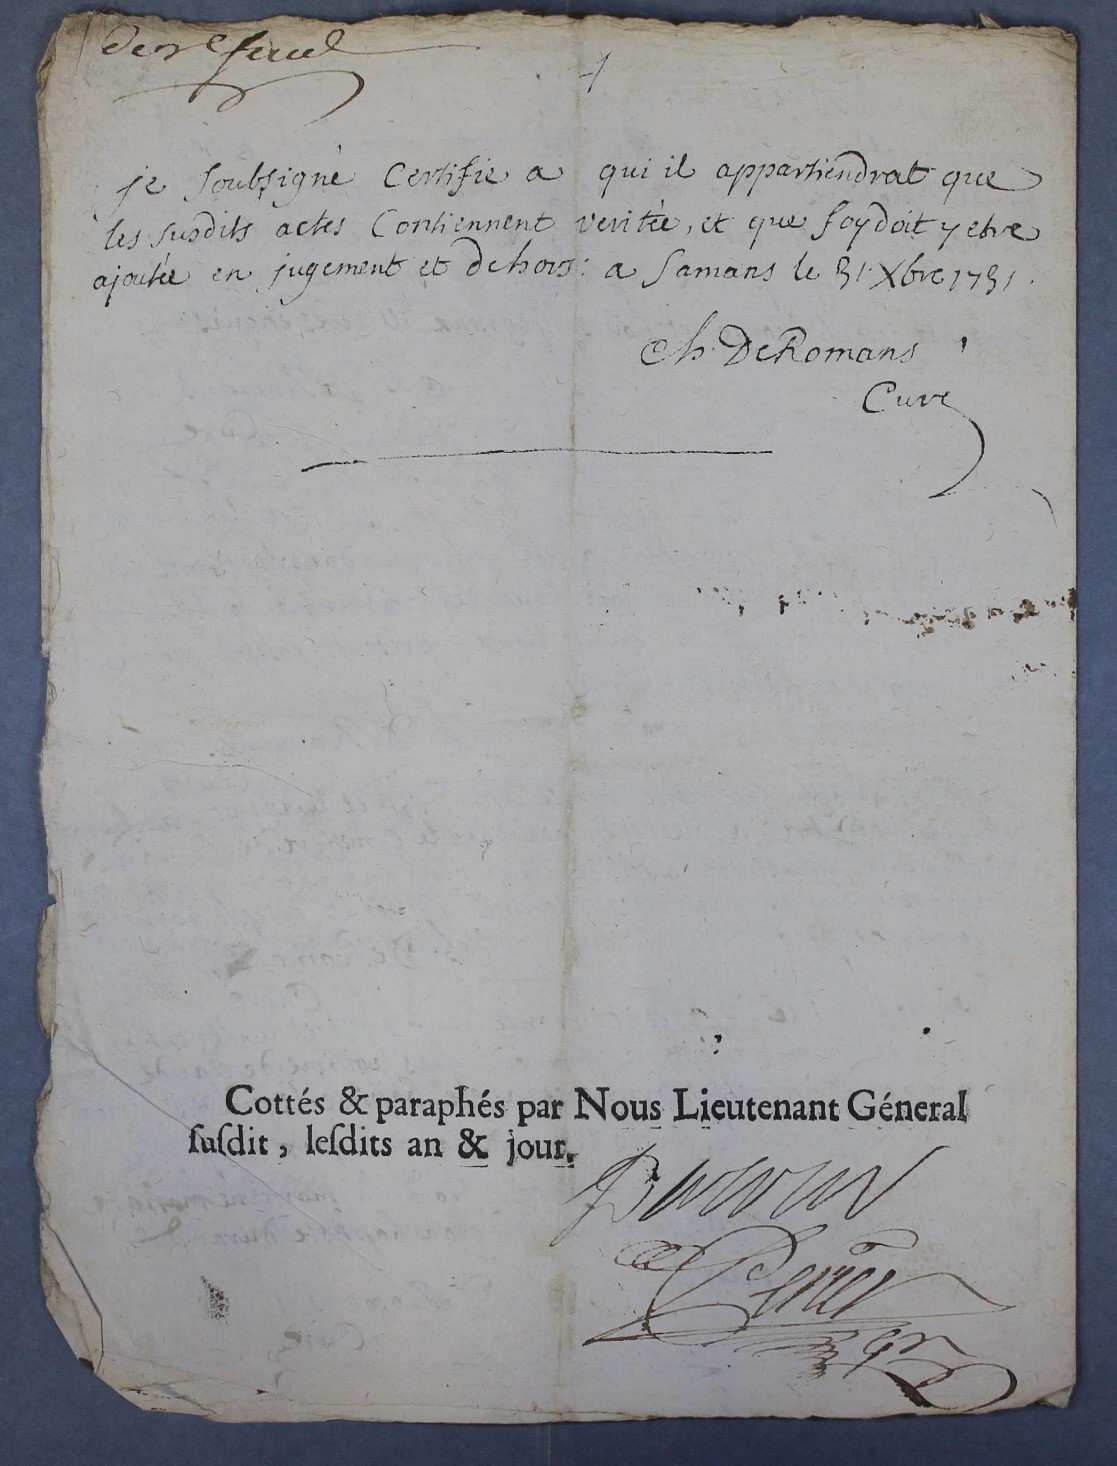 je soubsigné Certifie a qui il appartiendrat que
les susdits actes Contiennent veritée, et que foy doit y etre
ajoutée en jugement et dehors: a Samans le 31 Xbre 1731.
Ch. DeRomans
Curé
Cottés & paraphés par Nous Lieutenant Géneral
ſuſdit, leſdits an & jour.